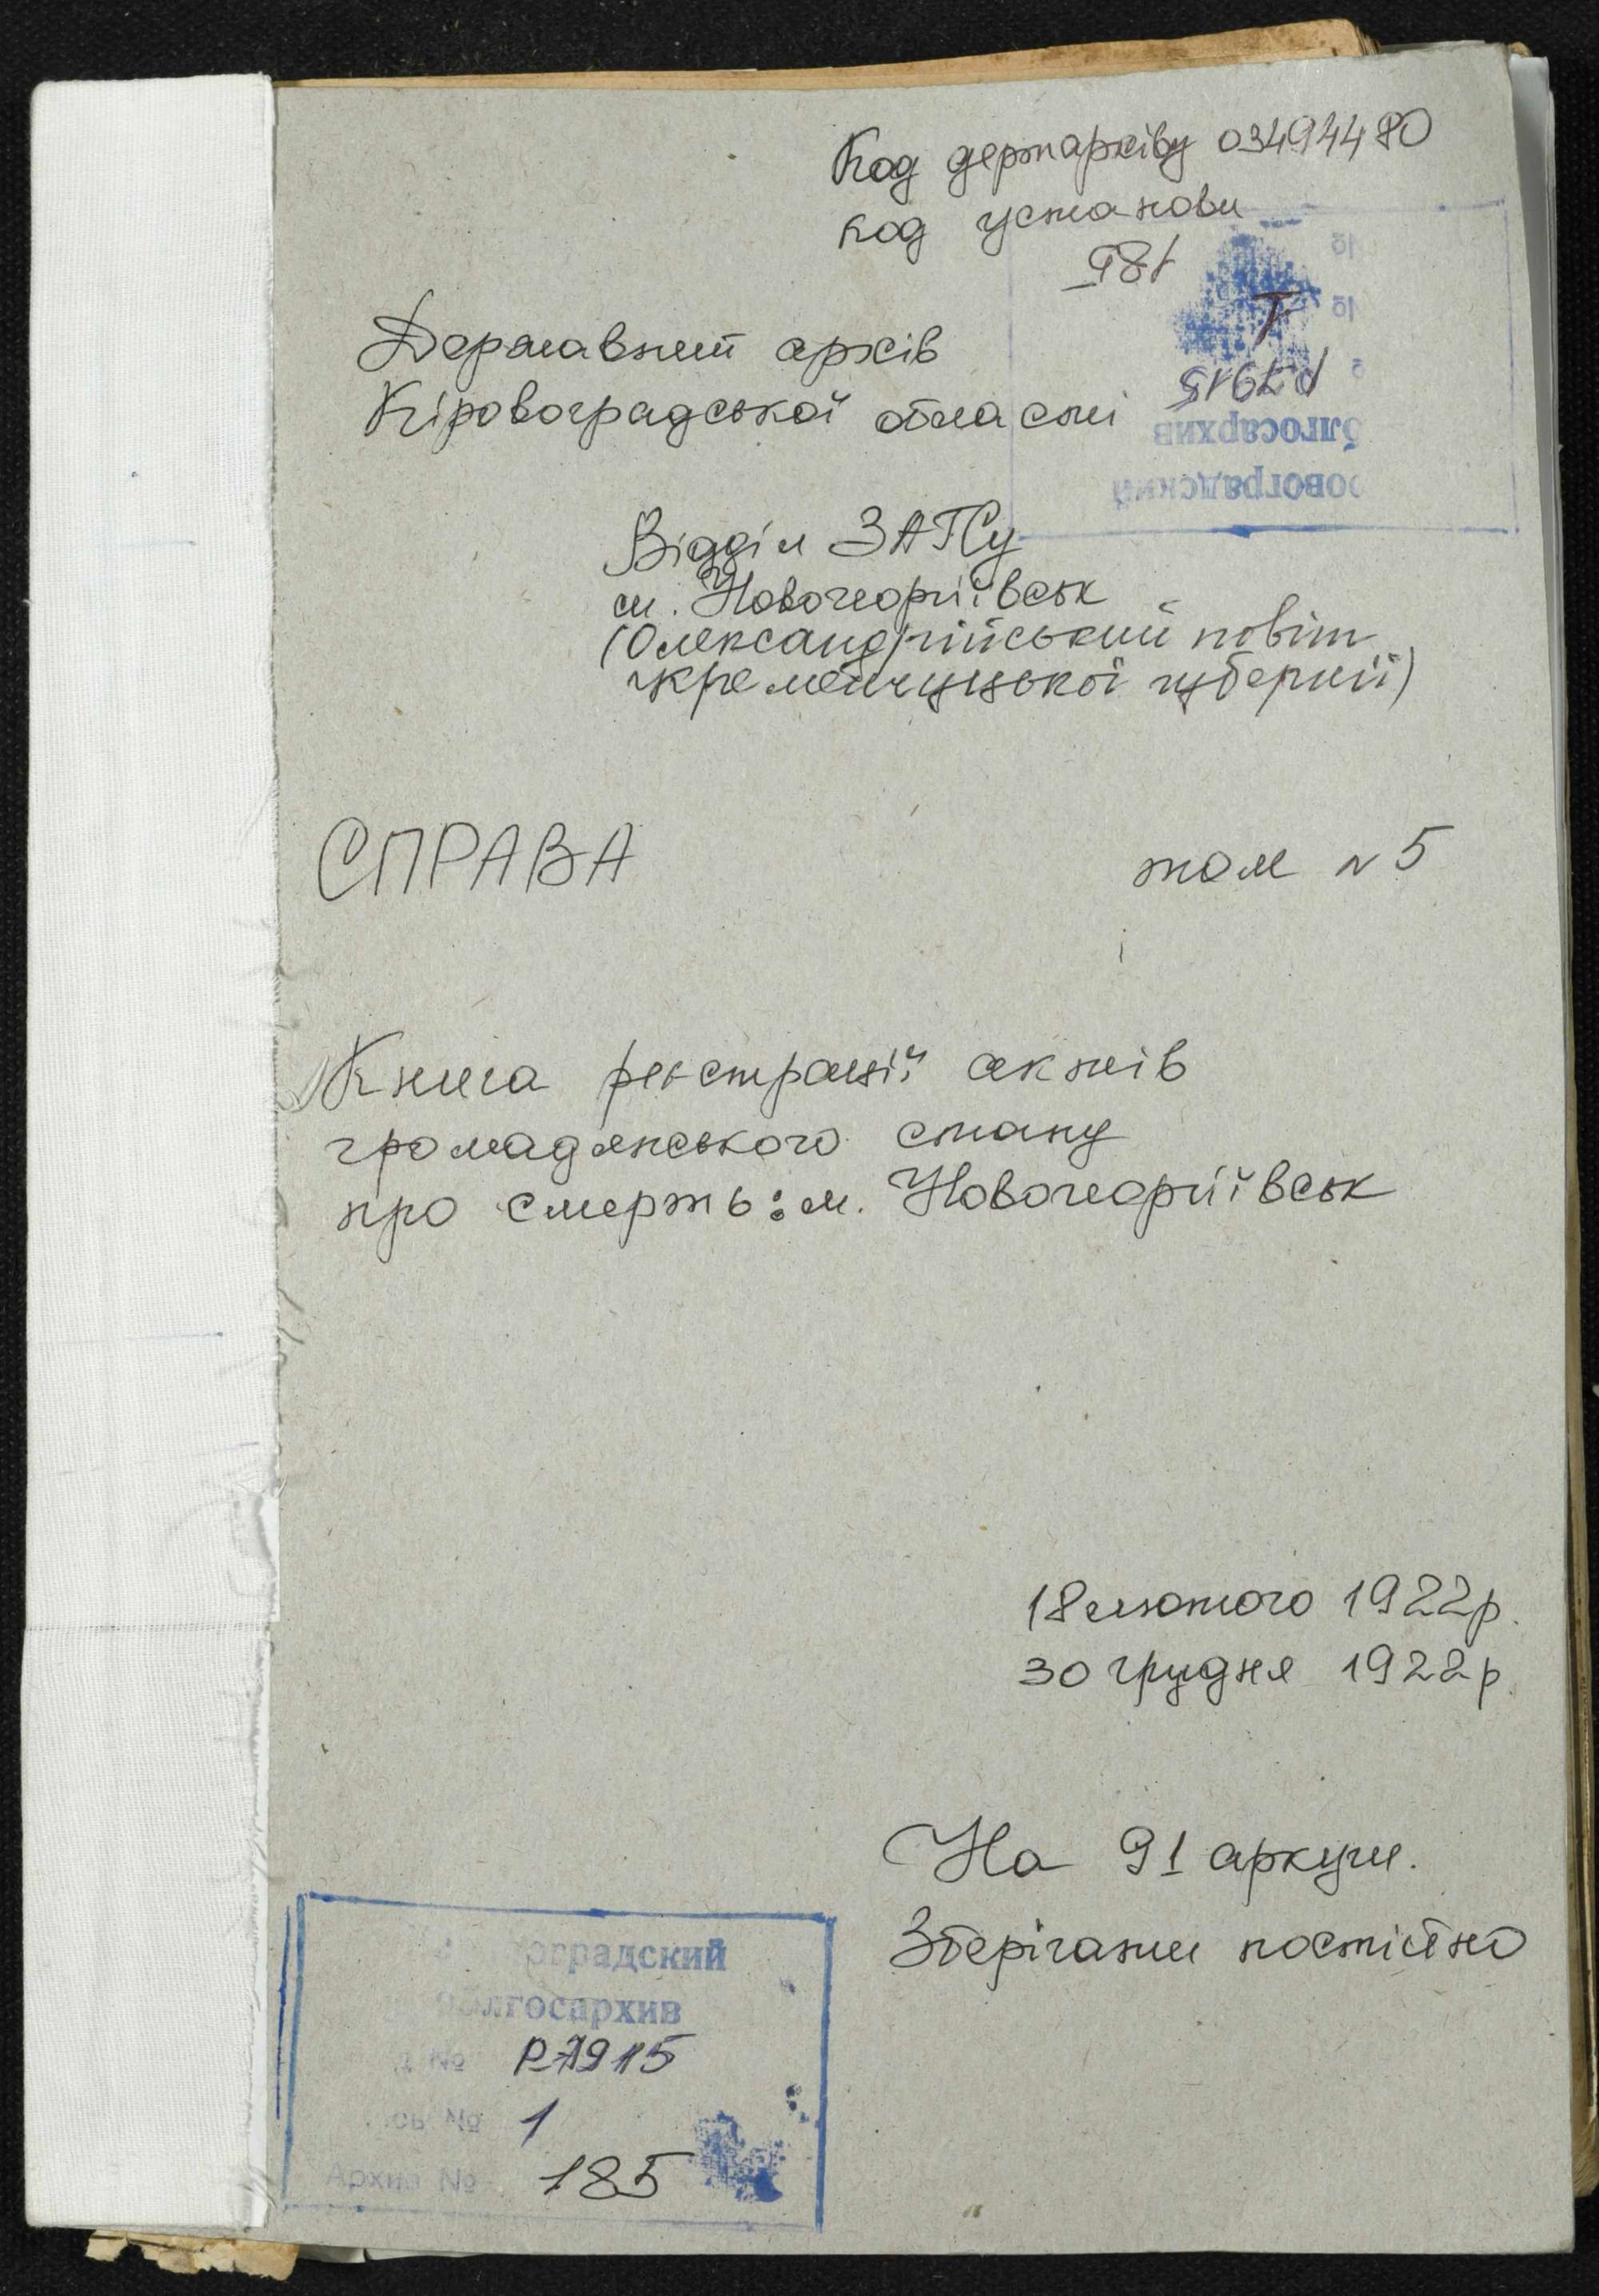 Код держархіву 03494480
Код установи
185
1
Р-7915
облгосархив
ровоградский
Державний архів
Кіровоградської області
Відділ ЗАГСу
м. Новогеоргіївськ
(Олександрійський повіт
Кременчуцької губернії)
СПРАВА том N 5
Книга реєстрації актів
громадянського стану
про смерть: м. Новогеоргіївськ
18 лютого 1922р.
30 грудня 1922р.
На 91 аркуш.
Зберігати постійно
воградский
облгосархив
№ Р-7915
№ 1
Архив № 185